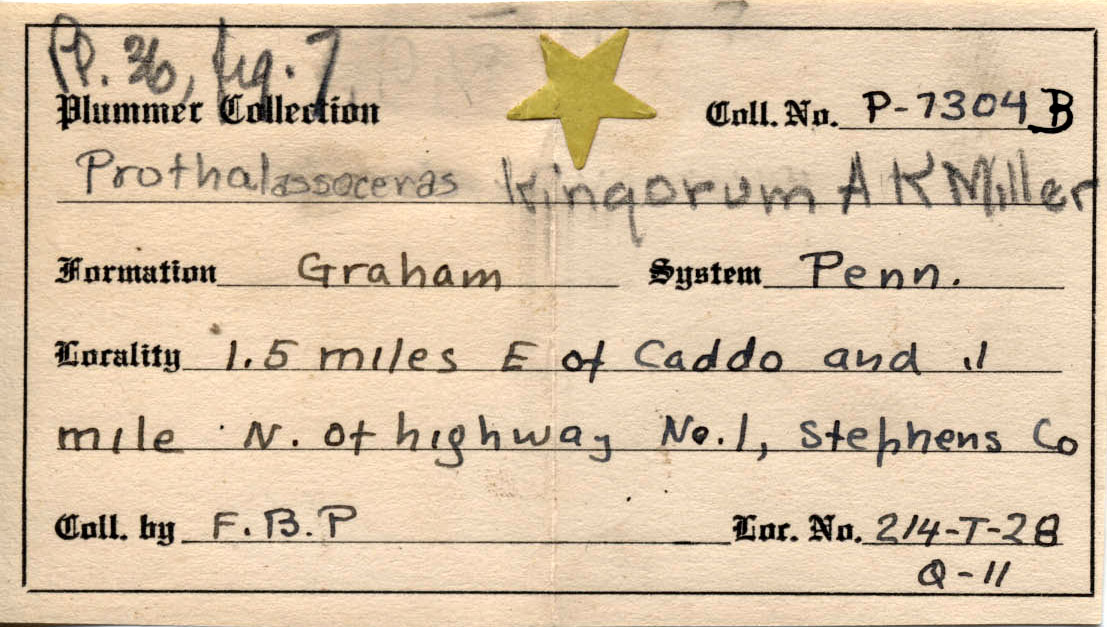 Pl. 36, fig. 7
Plummer Collection Coll. No. P-7304 B
Prothalassoceras kingorum A K Miller
Formation Graham System Penn.
Locality 1.5 miles E of Caddo and .1
mile N. of highway No. 1, Stephens Co
Coll. by F. B. P Loc. No. 214-T-28
Q-11